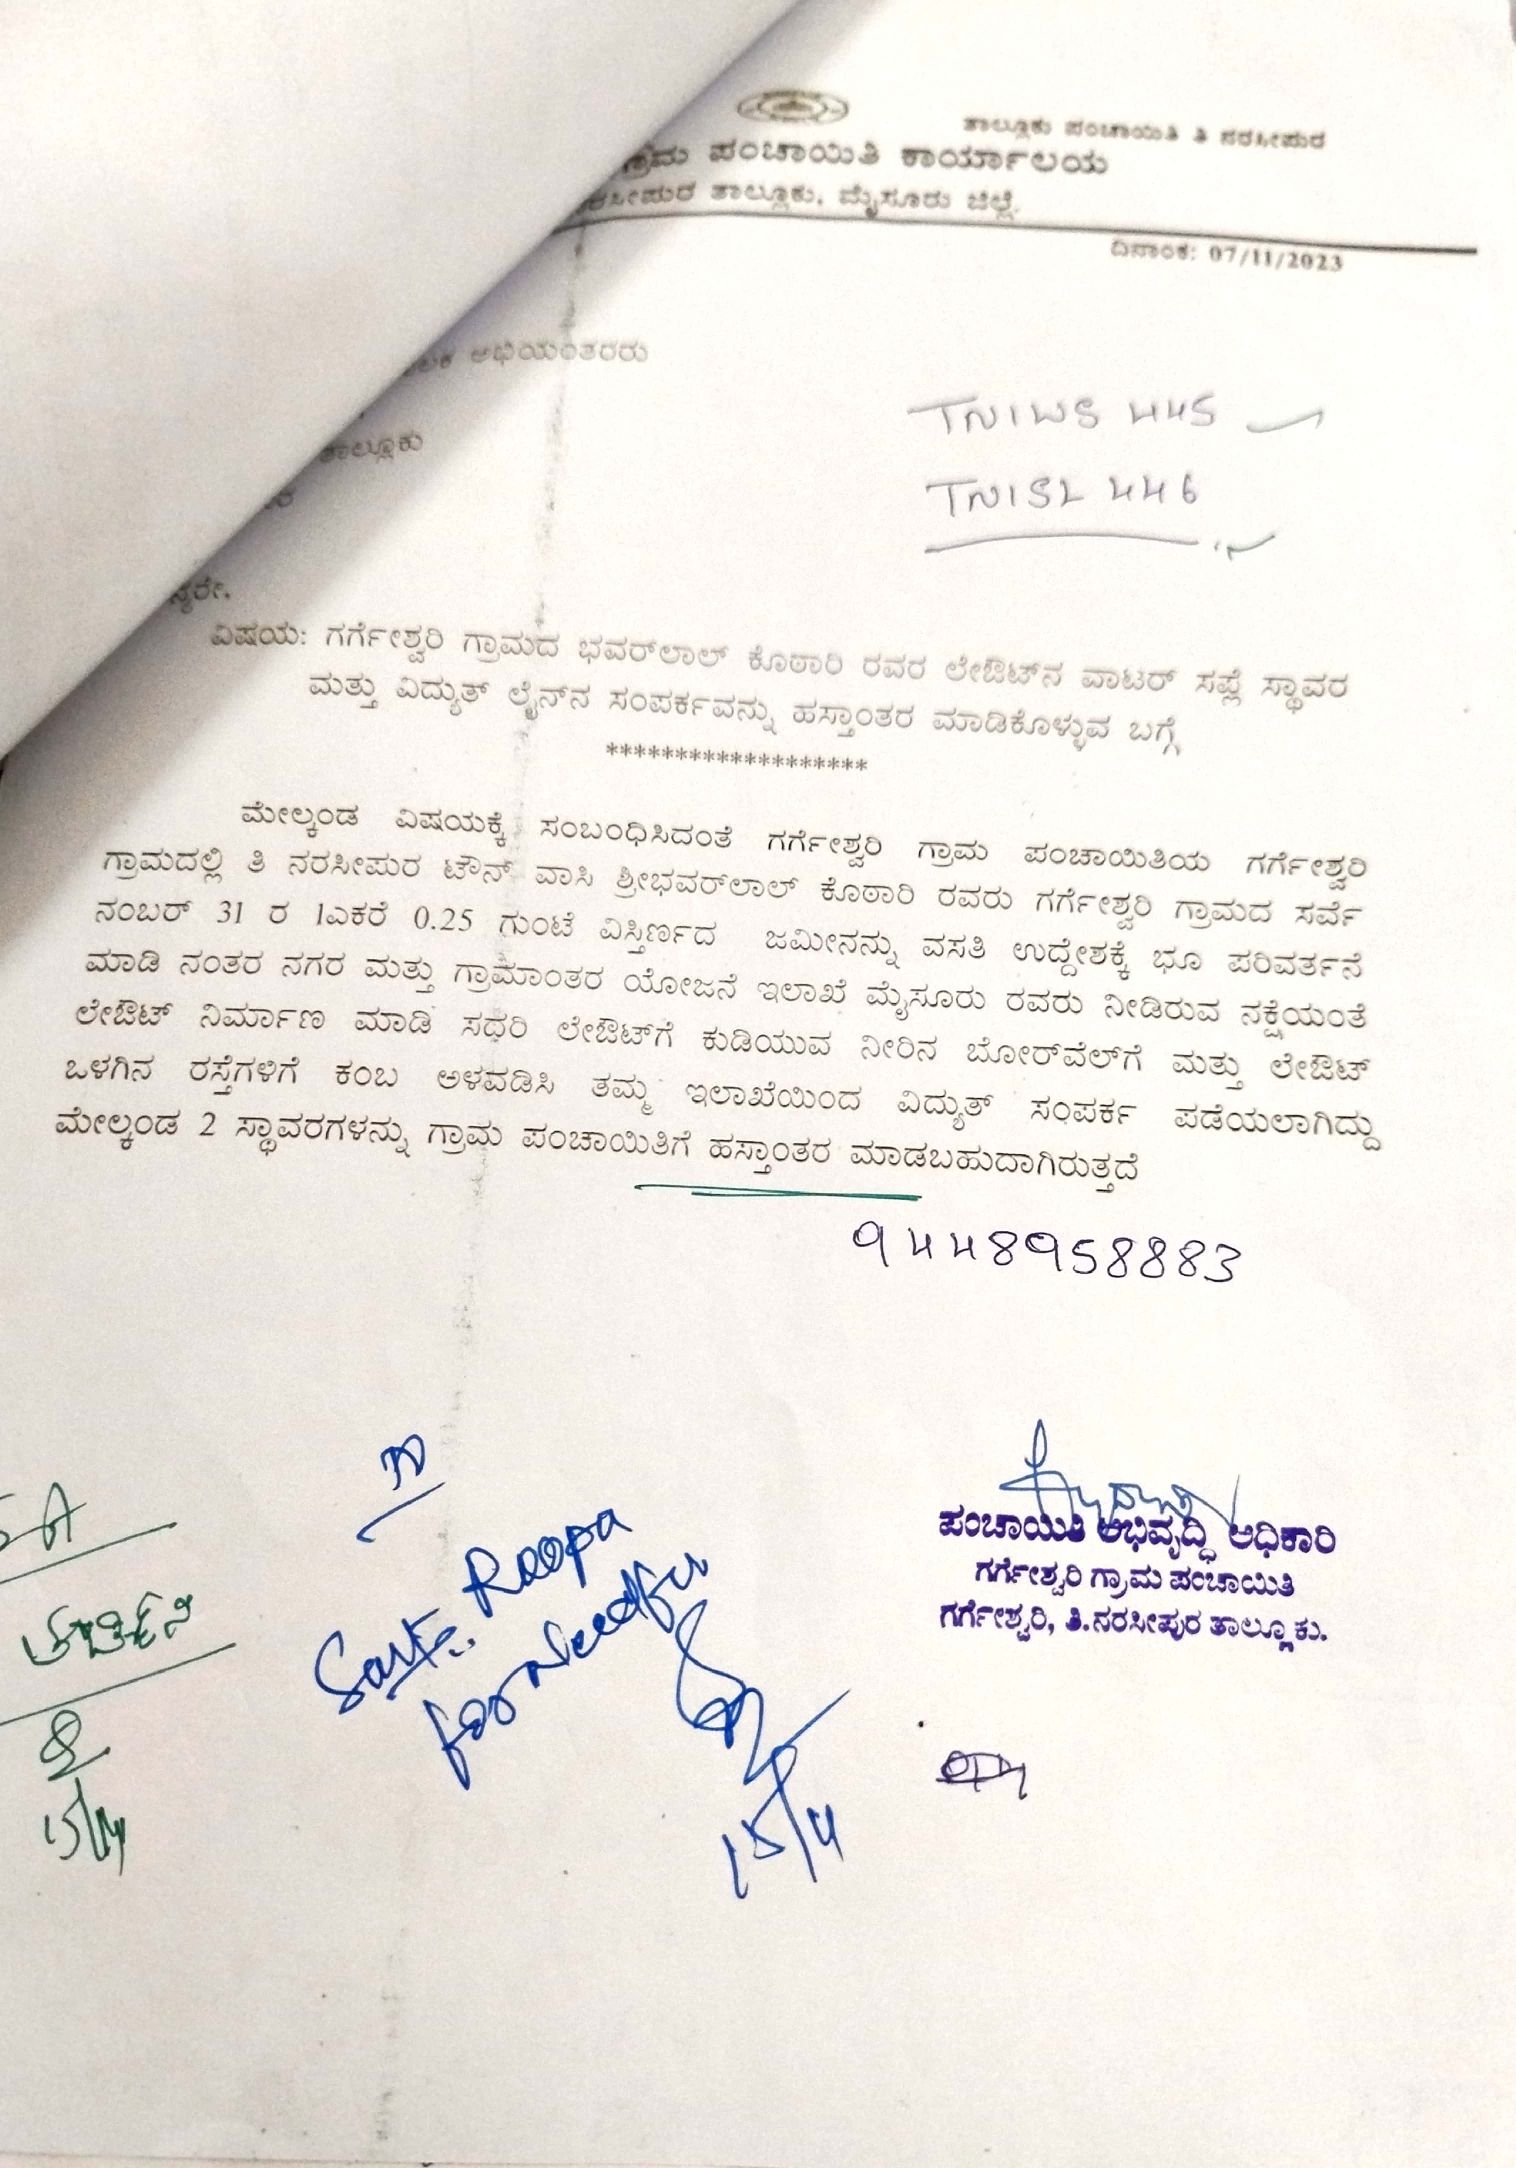 ತಾಲ್ಲೂಕು ಪಂಚಾಯಿತಿ ತಿ ನರಸೀಪುರ
ಗ್ರಾಮ ಪಂಚಾಯಿತಿ ಕಾರ್ಯಾಲಯ
ರಸೀಪುರ ತಾಲ್ಲೂಕು, ಮೈಸೂರು ಜಿಲ್ಲೆ.
ದಿನಾಂಕ: 07/11/2023
ಅಭಿಯಂತರರು
TNIWS 445
ತಾಲ್ಲೂಕು
TNISL 446
ನ್ಯರೇ,
ವಿಷಯ: ಗರ್ಗೇಶ್ವರಿ ಗ್ರಾಮದ ಭವರ್‌ಲಾಲ್ ಕೊಠಾರಿ ರವರ ಲೇಔಟ್‌ನ ವಾಟರ್ ಸಪ್ಲೆ ಸ್ಥಾವರ
ಮತ್ತು ವಿದ್ಯುತ್ ಲೈನ್‌ನ ಸಂಪರ್ಕವನ್ನು ಹಸ್ತಾಂತರ ಮಾಡಿಕೊಳ್ಳುವ ಬಗ್ಗೆ
*******************
ಮೇಲ್ಕಂಡ ವಿಷಯಕ್ಕೆ ಸಂಬಂಧಿಸಿದಂತೆ ಗರ್ಗೇಶ್ವರಿ ಗ್ರಾಮ ಪಂಚಾಯಿತಿಯ ಗರ್ಗೇಶ್ವರಿ
ಗ್ರಾಮದಲ್ಲಿ ತಿ ನರಸೀಪುರ ಟೌನ್ ವಾಸಿ ಶ್ರೀಭವರ್‌ಲಾಲ್ ಕೊಠಾರಿ ರವರು ಗರ್ಗೇಶ್ವರಿ ಗ್ರಾಮದ ಸರ್ವೆ
ನಂಬರ್ 31 ರ 1ಎಕರೆ 0.25 ಗುಂಟೆ ವಿಸ್ತಿರ್ಣದ ಜಮೀನನ್ನು ವಸತಿ ಉದ್ದೇಶಕ್ಕೆ ಭೂ ಪರಿವರ್ತನೆ
ಮಾಡಿ ನಂತರ ನಗರ ಮತ್ತು ಗ್ರಾಮಾಂತರ ಯೋಜನೆ ಇಲಾಖೆ ಮೈಸೂರು ರವರು ನೀಡಿರುವ ನಕ್ಷೆಯಂತೆ
ಲೇಔಟ್ ನಿರ್ಮಾಣ ಮಾಡಿ ಸಧರಿ ಲೇಔಟ್‌ಗೆ ಕುಡಿಯುವ ನೀರಿನ ಬೋರ್‌ವೆಲ್‌ಗೆ ಮತ್ತು ಲೇಔಟ್
ಒಳಗಿನ ರಸ್ತೆಗಳಿಗೆ ಕಂಬ ಅಳವಡಿಸಿ ತಮ್ಮ ಇಲಾಖೆಯಿಂದ ವಿದ್ಯುತ್ ಸಂಪರ್ಕ ಪಡೆಯಲಾಗಿದ್ದು
ಮೇಲ್ಕಂಡ 2 ಸ್ಥಾವರಗಳನ್ನು ಗ್ರಾಮ ಪಂಚಾಯಿತಿಗೆ ಹಸ್ತಾಂತರ ಮಾಡಬಹುದಾಗಿರುತ್ತದೆ
9448958883
ಪಂಚಾಯಿತಿ ಅಭಿವೃದ್ಧಿ ಅಧಿಕಾರಿ
ಗರ್ಗೇಶ್ವರಿ ಗ್ರಾಮ ಪಂಚಾಯಿತಿ
ಗರ್ಗೇಶ್ವರಿ, ತಿ.ನರಸೀಪುರ ತಾಲ್ಲೂಕು.
Roopa
for Needful
15/4
15/4